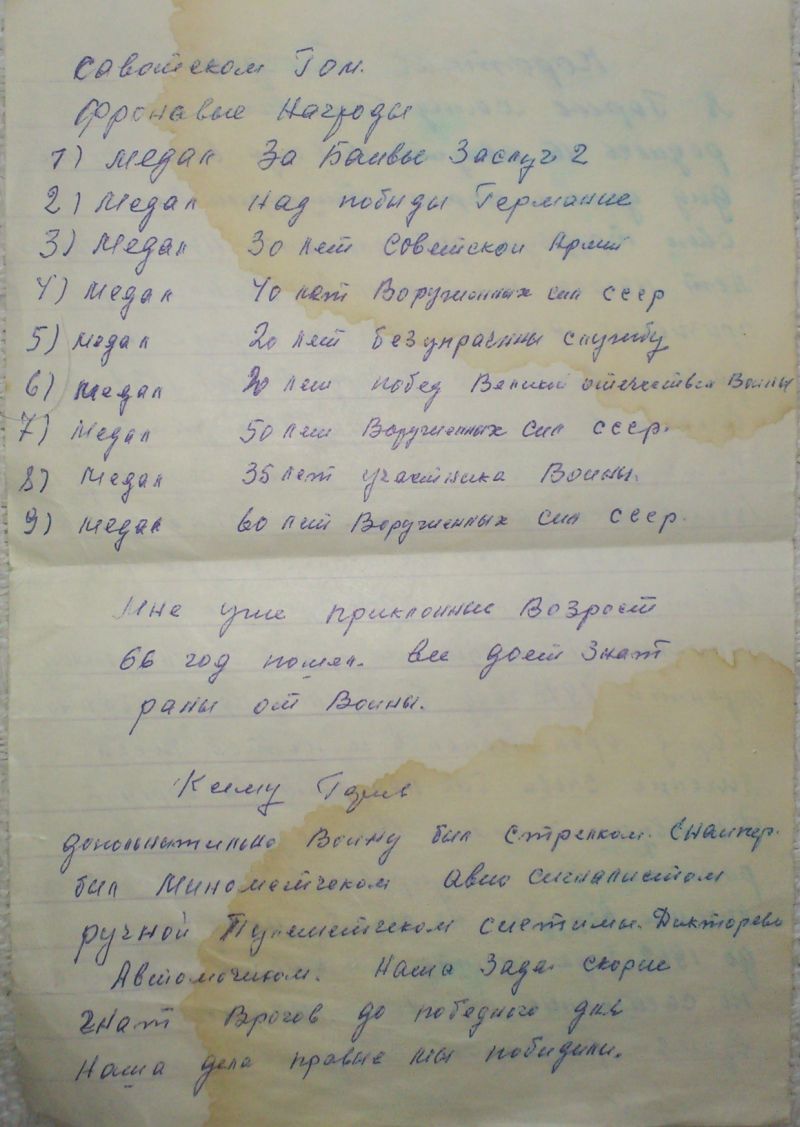 савотском Гом.
фронавые Награды
1) Медал За Баивые Заслуг 2
2) Медал Над победы Германие
3) Медал 30 лет Советской Армии
4) Медал 40 лет Воружионных сил ссср
5) Медал 20 лет безупрачны службу
6) Медал 20 лет побед Великой отечествен Воины
7) Медал 50 лет Воружионных сил ссср.
8) Медал 35 лет участника Воины.
9) Медал 60 лет Воружионных сил ссср.
Мне уже приклонные Возраст
66 год пошел. все доет Знат
раны от Воины.
К сему
допольнительно Воину был стрелком. Снаипер.
был Минометчеком авио сигналистом
ручной Пулеметчеком систимы. Диктарева
Автомочиком. Наша Зада скорие
гнат Врогов до победного дня
Наша дела правие мы победили.